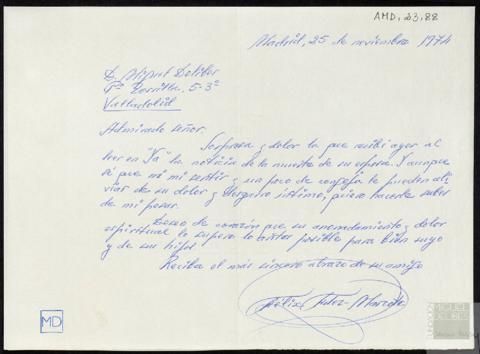 AMD, 23, 88
Madrid, 25 de noviembre 1974
D. Miguel Delibes
Pº Zorrilla, 5-3º
Valladolid
Admirado señor:
Sorpresa y dolor la que recibí ayer al
leer en "Ya" la noticia de la muerte de su esposa. Y aunque
sé que ni mi sentir y un poco de congoja le pueden ali
viar de su dolor y íntimo, quiero hacerle saber
de mi pesar.
Deseo de corazón que su anonadamiento y dolor
espiritual lo supere lo antes posible para bien suyo
y de sus hijos.
Reciba el más sincero abrazo de su amigo
Félix
MD
FUNDACIÓN
MIGUEL
DELIBES